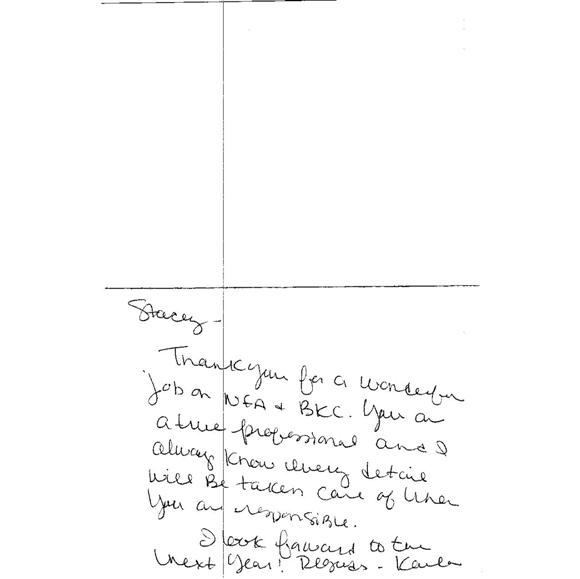 Stacey -
Thank you for a wonderful
job on NFA + BKC. You are
a true professional and I
always know every detail
will Be taken care of when
You are responsible.
I look forward to the
next year! Regards -